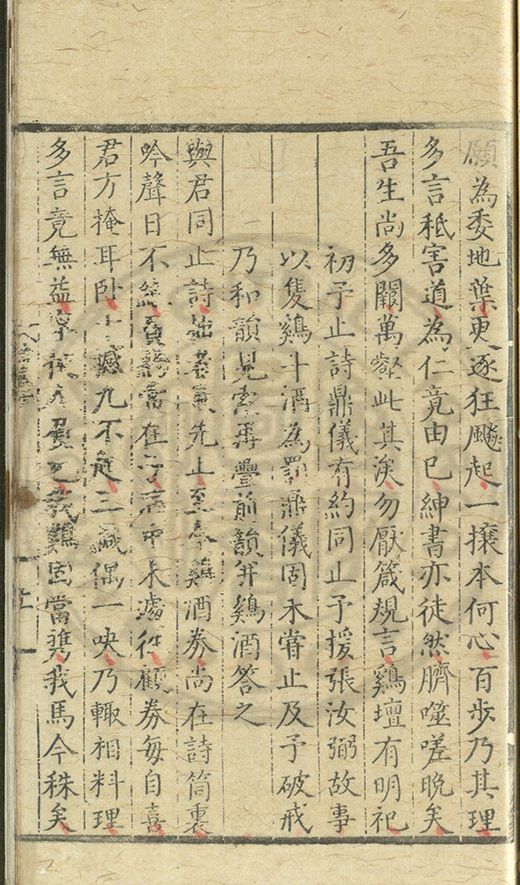 願為委地葉更逐狂飈起一攘本何心百步乃其理
多言秪害道為仁竟由已紳書亦徒然臍噬嗟晚矣
吾生尚多闕萬壑此其涘勿厭箴規言鷄壇有明祀
初予止詩鼎儀有約同止予援張汝弼故事
以隻鷄斗酒為罰鼎儀固未甞止及予破戒
乃和韻見索再疊前韻并鷄酒答之
與君同止詩拙者先止至今鷄酒券尚在詩筒裏
吟聲日不絶常在中未遽徃顧券每自喜
君方掩耳卧十九不三緘偶一吷乃輙相料理
多言竟無益我鷄固當携我馬今秣矣